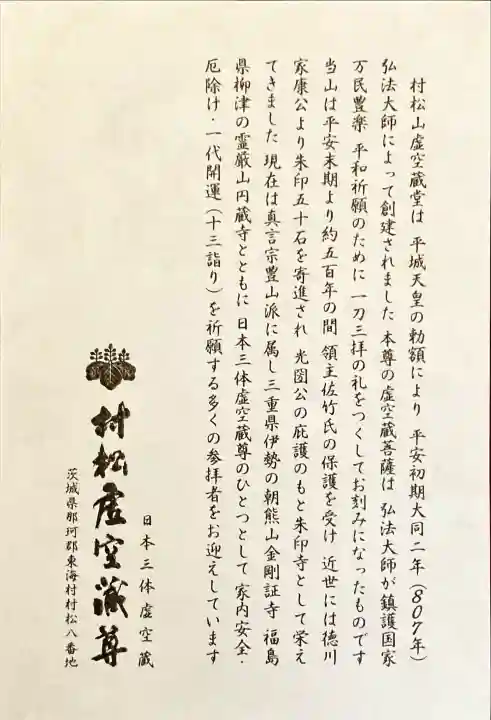 村松山虚空蔵堂は 平城天皇の勅額により 平安初期大同二年(807年)
弘法大師によって創建されました 本尊の虚空蔵菩薩は 弘法大師が鎮護国家
万民豊楽 平和祈願のために 一刀三拝の礼をつくしてお刻みになったものです
当山は平安末期より約五百年の間 領主佐竹氏の保護を受け 近世には徳川
家康公より朱印五十石を寄進され 光圀公の庇護のもと朱印寺として栄え
てきました 現在は真言宗豊山派に属し三重県伊勢の朝熊山金剛証寺 福島
県柳津の霊厳山円蔵寺とともに 日本三体虚空蔵尊のひとつとして 家内安全・
厄除け・一代開運(十三詣り)を祈願する多くの参拝者をお迎えしています
日本三体虚空蔵
村松虚空蔵尊
茨城県那珂郡東海村村松八番地